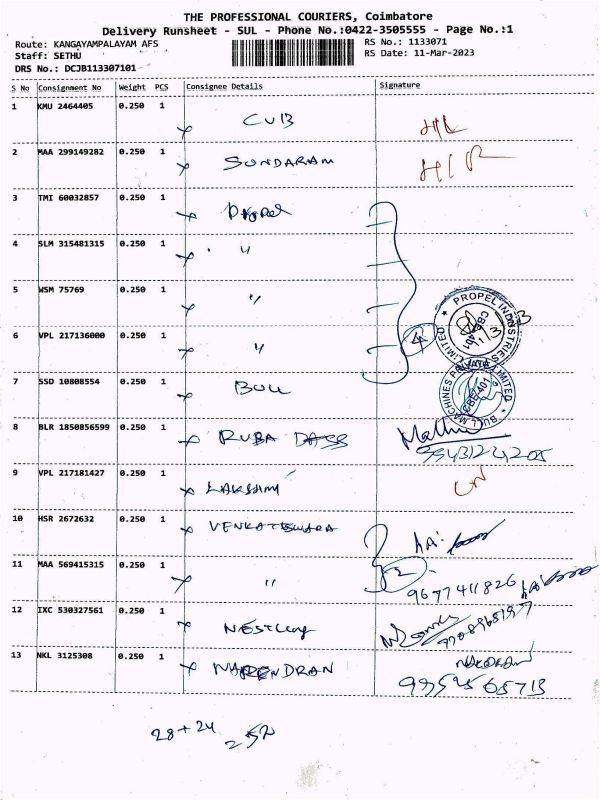 THE PROFESSIONAL COURIERS, Coimbatore
Delivery Runsheet - SUL - Phone No.:0422-3505555 - Page No.:1
Route: KANGAYAMPALAYAM AFS RS No.: 1133071
Staff: SETHU RS Date: 11-Mar-2023
DRS No.: DCJB113307101
S No Consignment No Weight PCS Consignee Details Signature
1 KMU 2464405 0.250 1 CUB
2 MAA 299149282 0.250 1 SUNDARAM
3 TMI 60032857 0.250 1
4 SLM 315481315 0.250 1 "
5 WSM 75769 0.250 1 "
6 VPL 217136000 0.250 1 " 4
PROPEL INDUSTRIES PRIVATE LIMITED
CBE-401
7 SSD 10808554 0.250 1 BULL
BULL MACHINES PRIVATE LIMITED
CBE-401
8 BLR 1850856599 0.250 1 RUBA DASS
9 VPL 217181427 0.250 1 LAKSHMI
10 HSR 2672632 0.250 1 VENKATESWARA
11 MAA 569415315 0.250 1 " 2 9677411826
12 IXC 530327561 0.250 1
13 NKL 3125308 0.250 1 NARENDRAN
28 + 24